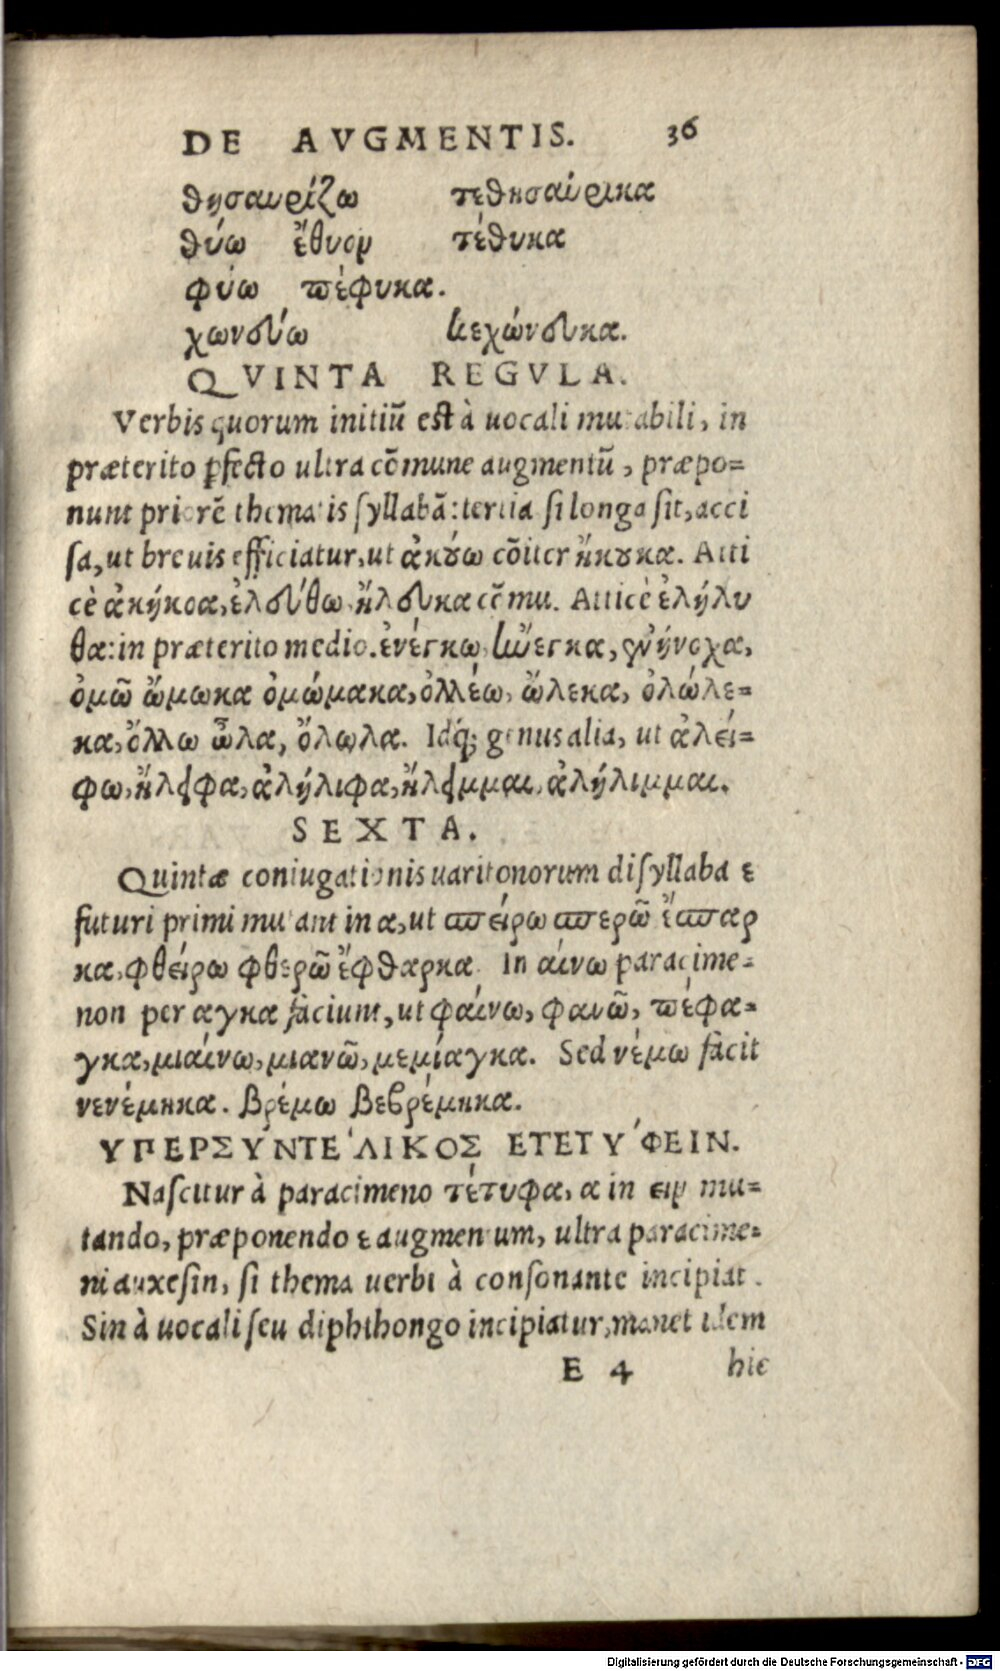 DE AVGMENTIS. 36
θησαυρίζω τεθησαύρικα
θύω ἔθυον τέθυκα
φύω πέφυκα.
χωνδύω κεχώνδυκα.
QVINTA REGVLA.
Verbis quorum initiũ est à uocali mutabili, in
præterito ꝑfecto ultra cõmune augmentũ, præpo=
nunt priorẽ thematis syllabã: tertia si longa sit, acci
sa, ut breuis efficiatur, ut ἀκούω cõiter ἤκουκα. Atti
cè ἀκήκοα, ἐλεύθω, ἤλευκα cõmu. Atticè ἐλήλυ
θα: in præterito medio. ἐνέγκω, ἤνεγκα, ἐνήνοχα,
ὀμῶ ὤμωκα ὀμώμακα, ὀλλέω, ὤλεκα, ὀλώλε=
κα, ὄλλω ὦλα, ὄλωλα. Idq́; genus alia, ut ἀλεί=
φω, ἤλειφα, ἀλήλιφα, ἤλειμμαι, ἀλήλιμμαι.
SEXTA.
Quintæ coniugationis uaritonorum disyllaba ε
futuri primi mutant in α, ut σπείρω σπερῶ ἔσπαρ
κα, φθείρω φθερῶ ἔφθαρκα. In αίνω paracime=
non per αγκα faciunt, ut φαίνω, φανῶ, πέφα=
γκα, μιαίνω, μιανῶ, μεμίαγκα. Sed νέμω facit
νενέμηκα. βρέμω βεβρέμηκα.
ΥΠΕΡΣΥΝΤΕ'ΛΙΚΟΣ ΕΤΕΤΥ'ΦΕΙΝ.
Nascitur à paracimeno τέτυφα, α in ειν mu=
tando, præponendo ε augmentum, ultra paracime=
ni auxesin, si thema uerbi à consonante incipiat.
Sin à uocali seu diphthongo incipiatur, manet idem
E 4 hic
Digitalisierung gefördert durch die Deutsche Forschungsgemeinschaft - DFG